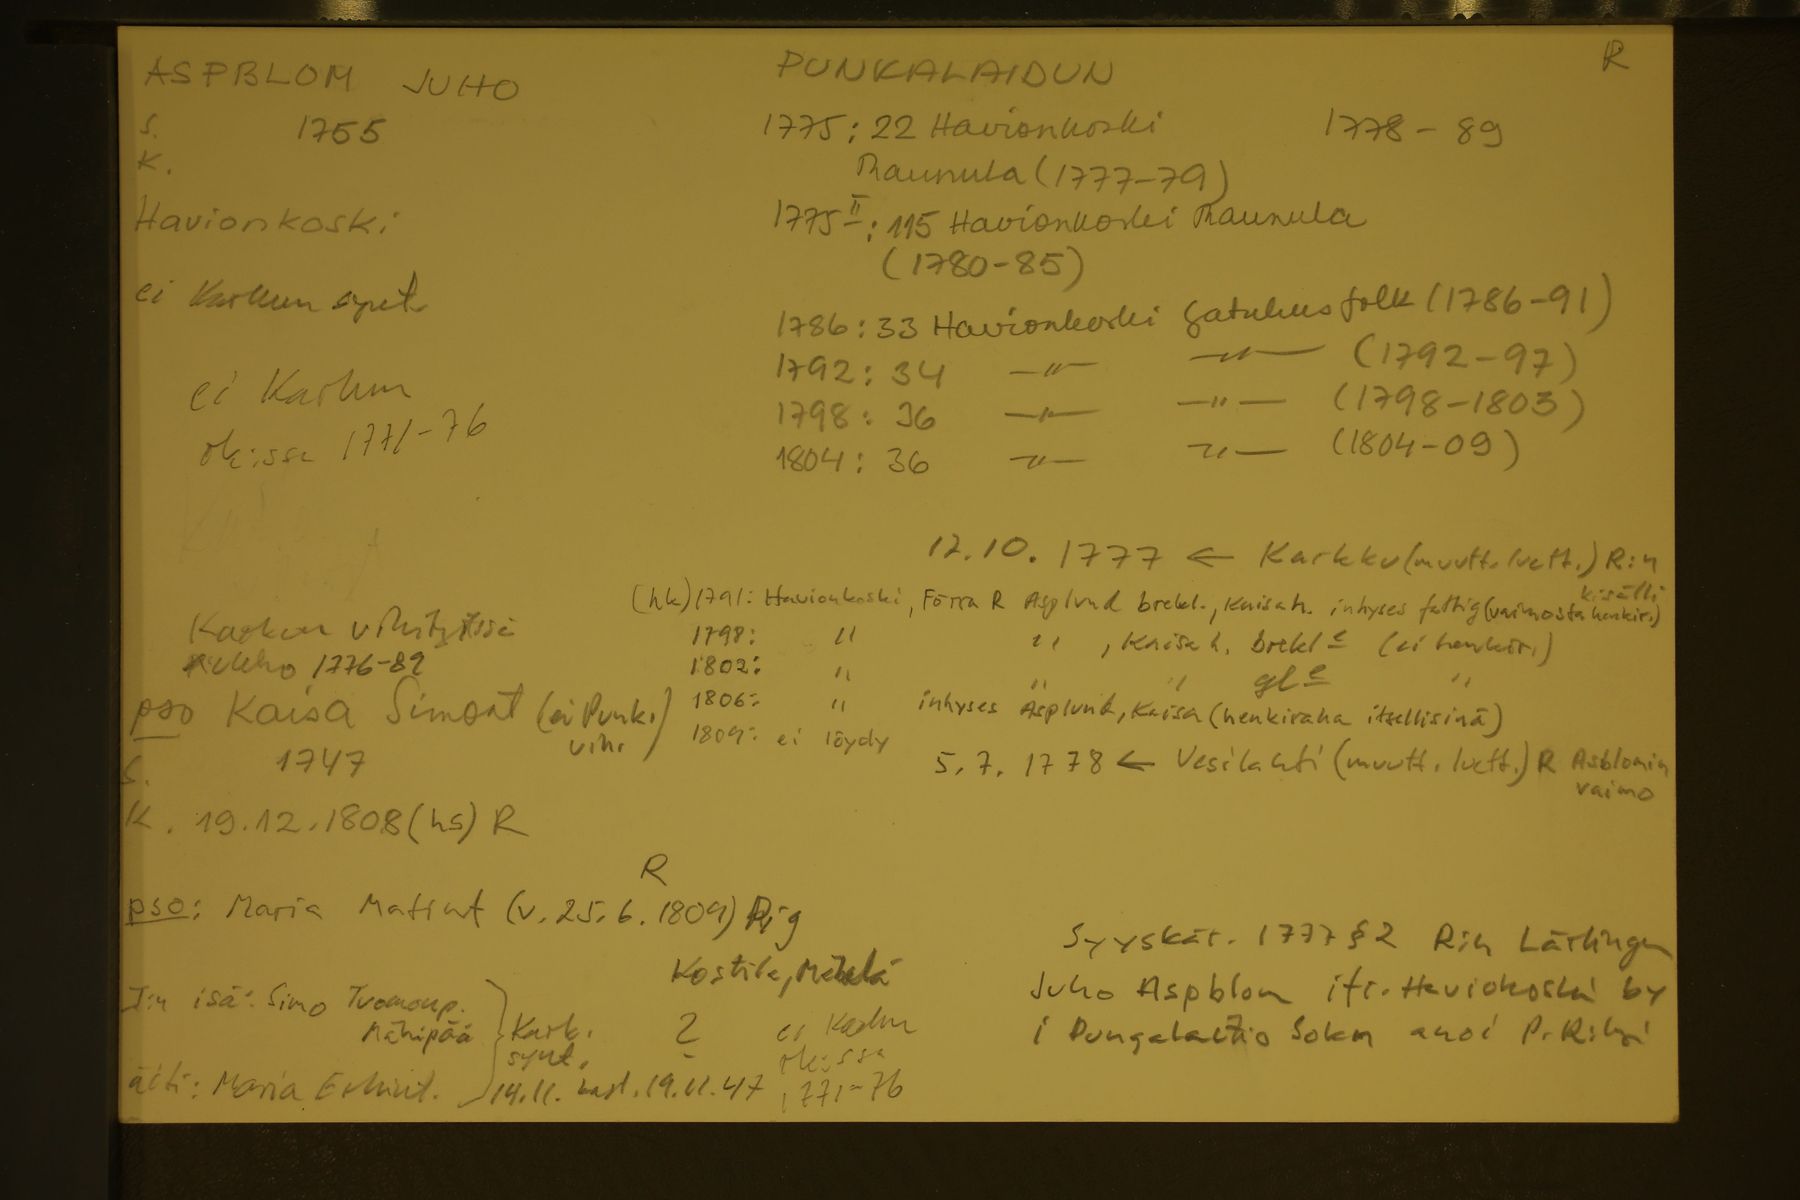 ASPBLOM JUHO PUNKALAIDUN R
s. 1755
k.
Havionkoski
ei Karkun synt.
ei Karkun
rk:ssa 1771-76
1775: 22 Havionkoski 1778-89
Raunula (1777-79)
1775 II: 115 Havionkoski Raunula
(1780-85)
1786: 33 Havionkoski Gatuhusfolk (1786-91)
1792: 34 -"- -"- (1792-97)
1798: 36 -"- -"- (1798-1803)
1804: 36 -"- -"- (1804-09)
12.10. 1777 ← Karkku (muutt. luett.) R:n
kisälli
(hk) 1791: Havionkoski, Förra R Asplund brekl., Kaisa h. inhyses fattig (vaimosta henkir.)
1798: " " , Kaisa h. brekl e (ei henkir.)
1802: " " " gl e "
1806: " inhyses Asplund, Kaisa (henkiraha itsellisinä)
1809: ei löydy
Karkun vihityissä
1776-89
pso Kaisa Simont (ei Punk.
vih.)
s. 1747
5.7. 1778 ← Vesilahti (muutt. luett.) R Asblomin
vaimo
k. 19.12.1808 (hs) R
R
pso: Maria Matint (v. 25.6. 1809) Pig
Kostila,
J:n isä: Simo Tuomonp.
Mähipää
Kark.
synt.
?
ei Karkun
rk:ssa
1771-76
äiti: Maria Erkint. 14.11. kast. 19.11.47
Syyskär. 1777 § 2 R:n Lärlingen
Juho Aspblom ifr. Haviokoski by
i Pungalaitio Sokn anoi P. R:ksi